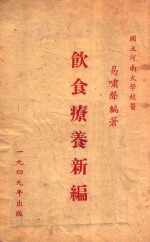 國立河南大學校醫
易嘯聲編著
飲食療養新編
一九四九年出版